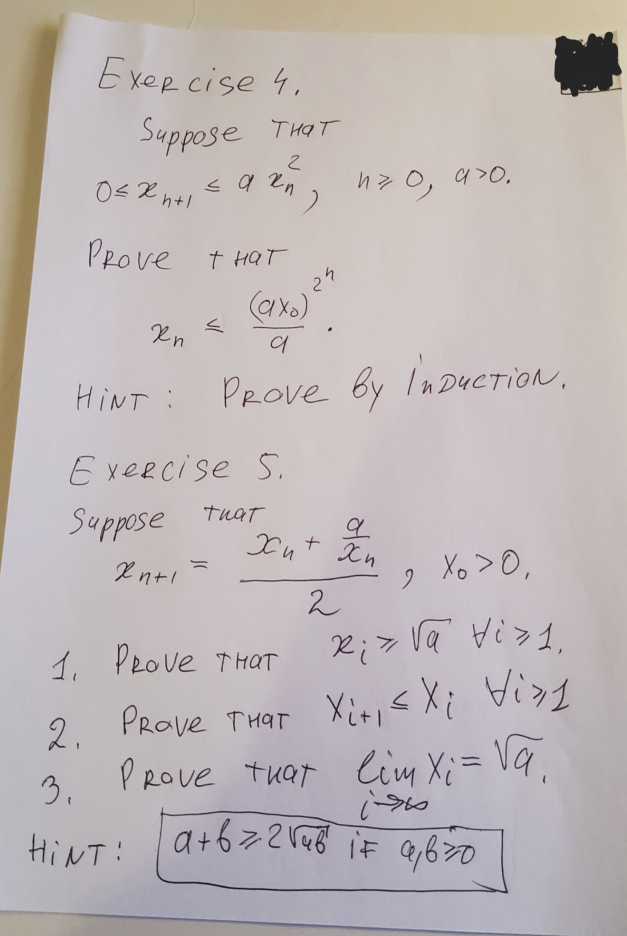 Exercise 4.
Suppose that
0 ≤ x_{n+1} ≤ a x_n^2, n ≥ 0, a > 0.
Prove that
x_n ≤ (ax_0)^{2^n} / a.
Hint: Prove by induction.
Exercise 5.
Suppose that
x_{n+1} = (x_n + a/x_n) / 2, x_0 > 0.
1. Prove that x_i ≥ √a ∀i ≥ 1.
2. Prove that x_{i+1} ≤ x_i ∀i ≥ 1
3. Prove that lim_{i→∞} x_i = √a.
Hint: a+b ≥ 2√ab if a,b ≥ 0